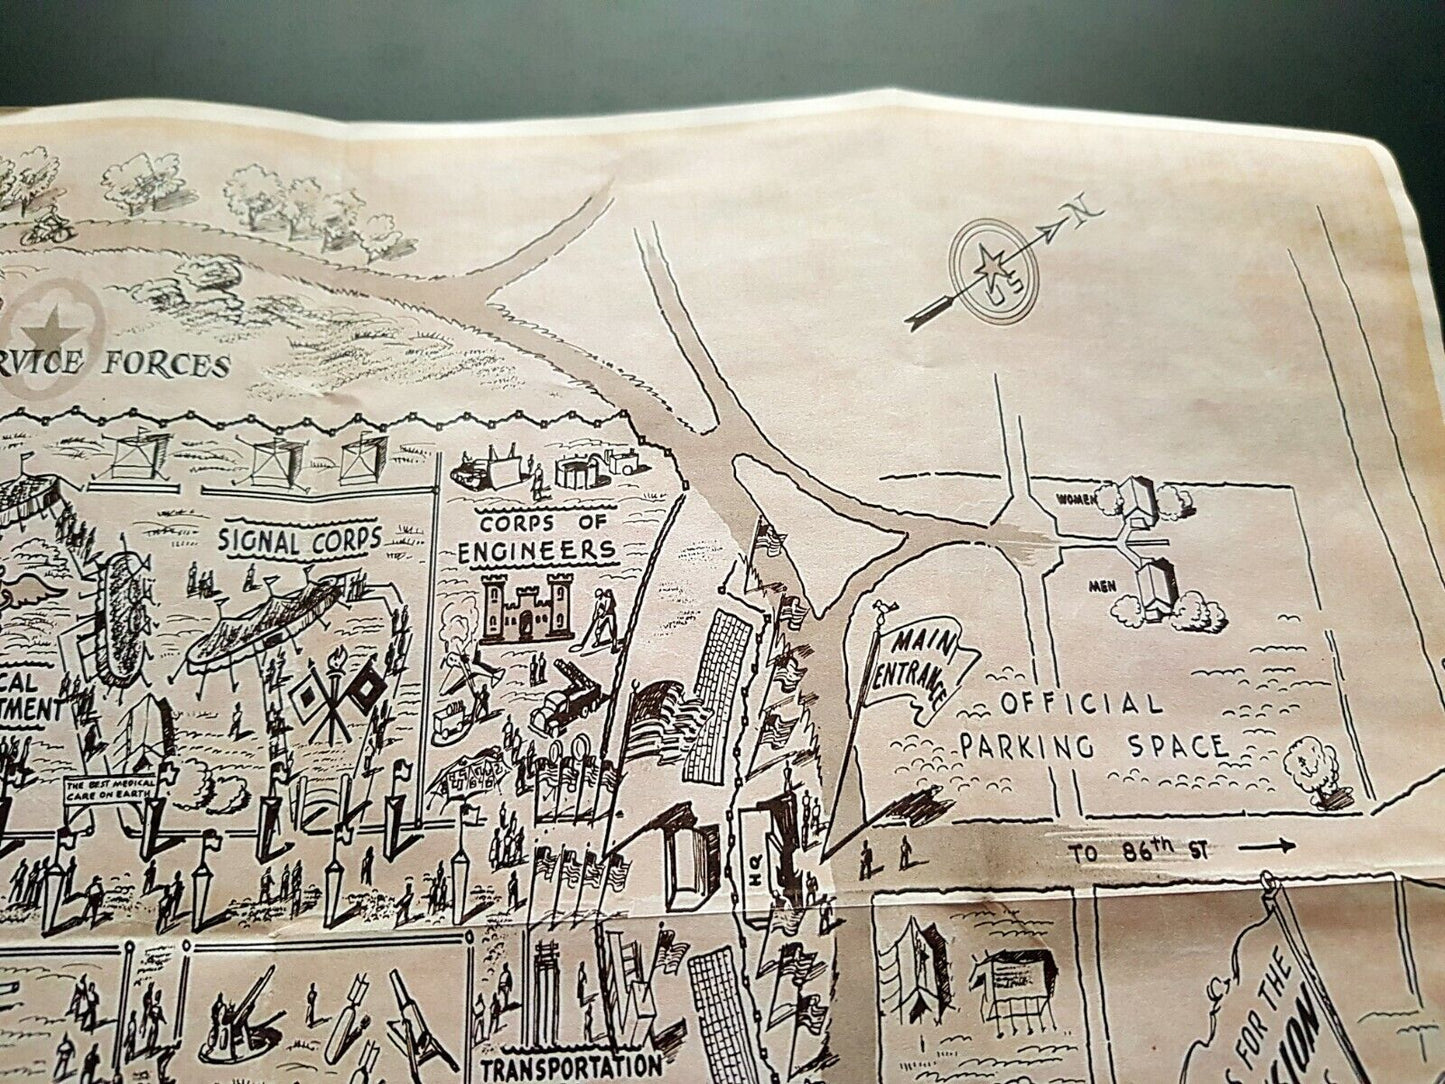 N
US
RVICE FORCES
WOMEN
SIGNAL CORPS
CORPS OF
ENGINEERS
MEN
MAIN
ENTRANCE
CAL
TMENT
OFFICIAL
PARKING SPACE
THE BEST MEDICAL
CARE ON EARTH
TO 86th ST
HQ
FOR THE
SION
TRANSPORTATION